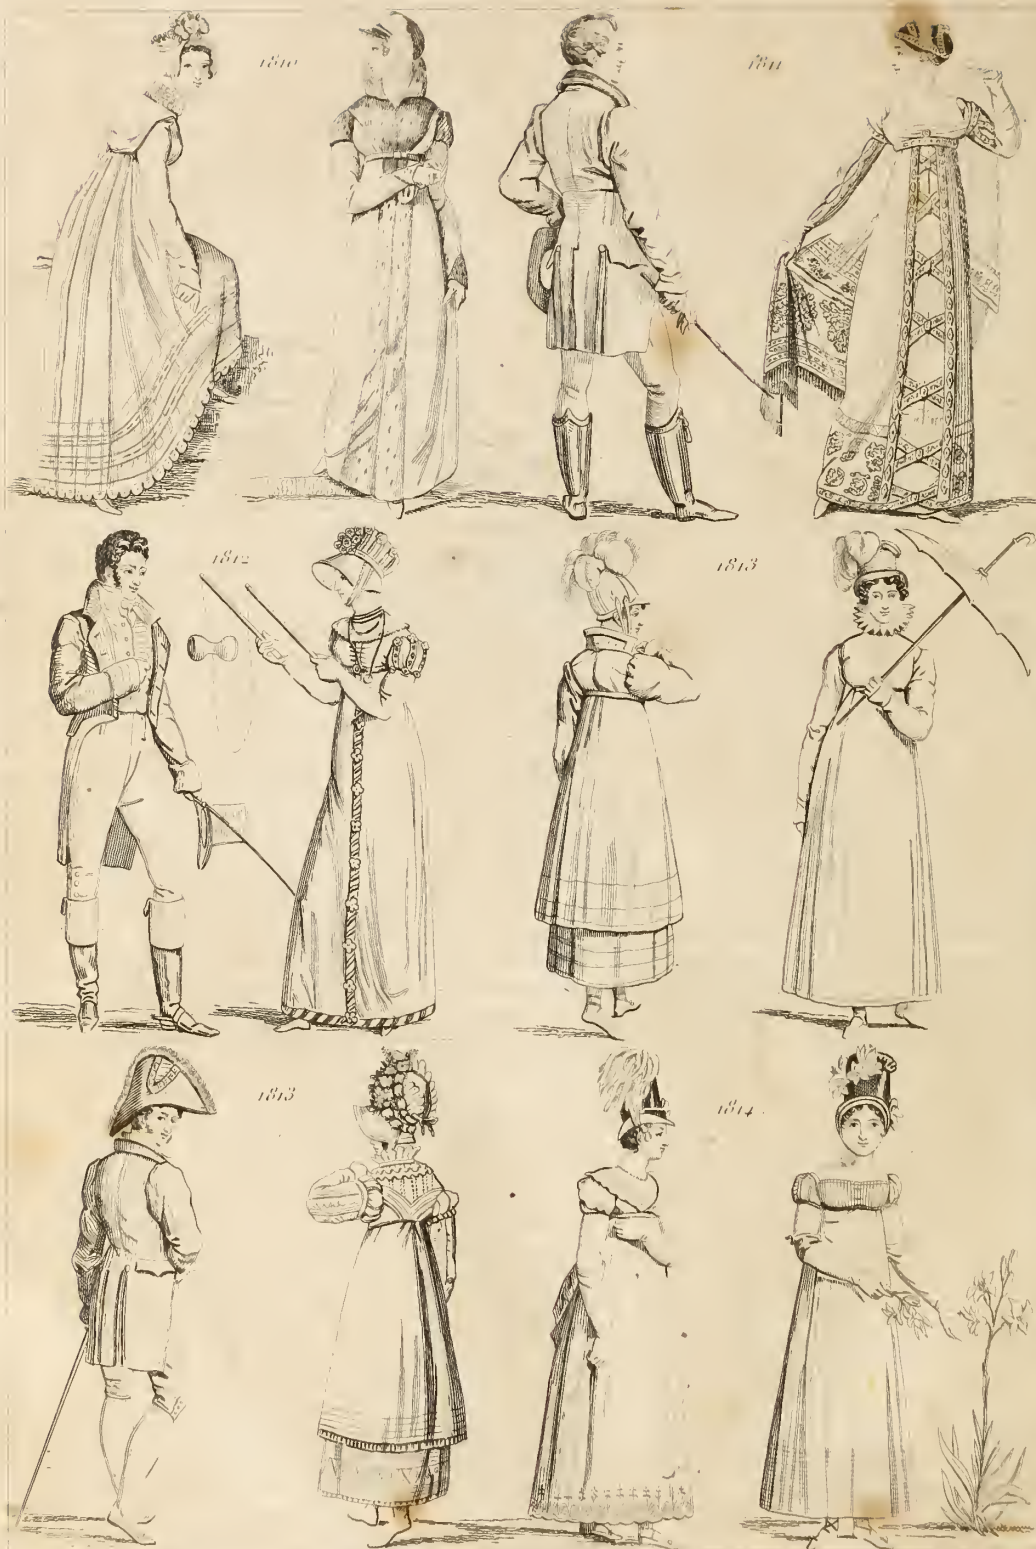 1810
1811
1812
1813
1813
1814.